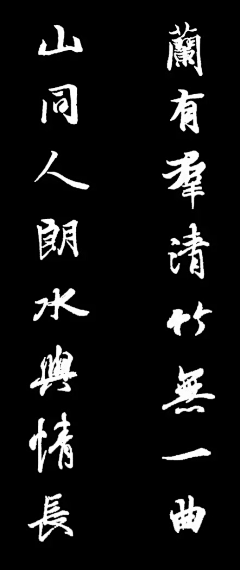 蘭有羣清竹無一曲
山同人朗水與情長